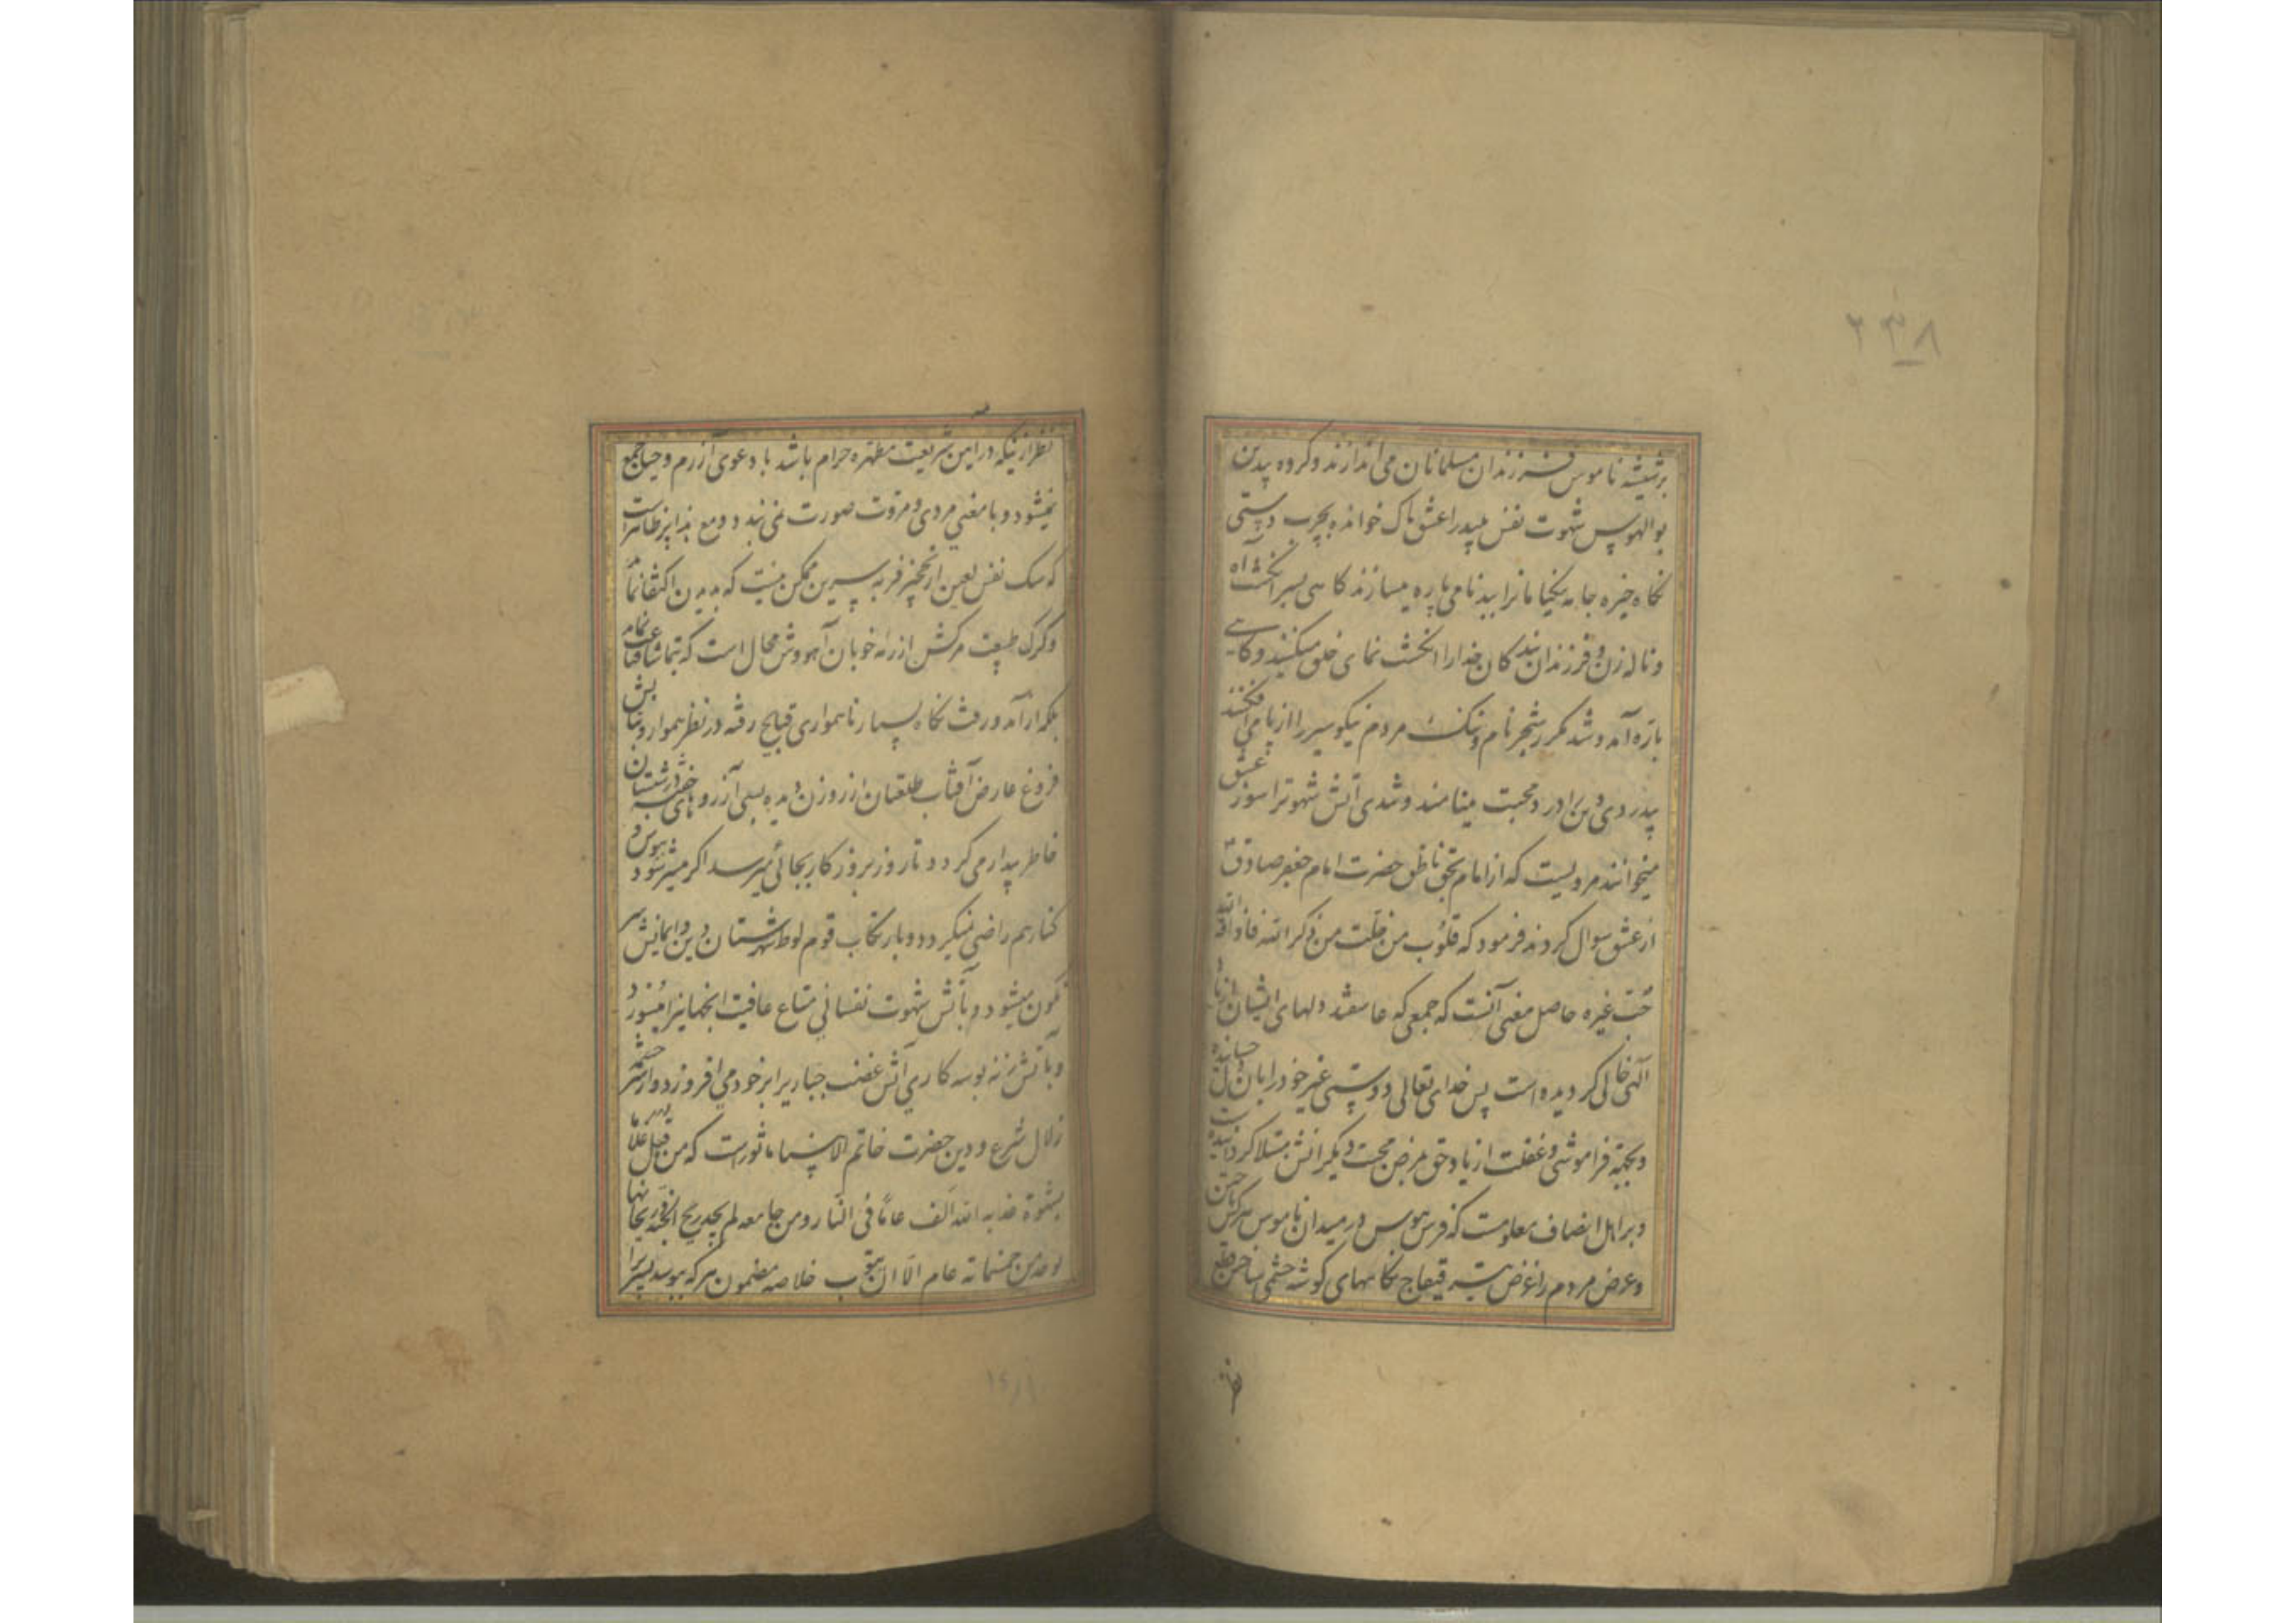 ۲۳۸
بر شیشه ناموس فرزندان مسلمانان می اندازند و کروه بدین
بوالهوس شهوت نفس پلید را عشق پاک خوانده بچرب دستی
نکاه خیره جامه یکنامانرا ببدنامی پاره میسازند کاهی بسرانکشت آه
و ناله زن و فرزندان بندکان خدارا انکشت نمای خلق میکنند و کاهی
باره آمد و شد مکرر شجر نام و ننک مردم نیکو سیر را از پا می افکنند
پدر دی و برادر در محبت مینامند و شدی آتش شهوترا سوز عشق
میخوانند مرویست که از امام بحق ناطق حضرت امام جعفر صادق
از عشق سوال کردند فرمود که قلوب من خلت من ذکر الله فاذاقها الله
حب غیره حاصل معنی آنست که جمعی که عاشقند دلهای ایشان از یاد
آلهی خالی کردیده است پس خدای تعالی دوستی غیر خود را بآن دل چسبانده
و بجهة فراموشی و غفلت از یاد حق بمرض محبت دیکرانش مبتلا کردانیده است
و بر اهل انصاف معلومست که فرس هوس در میدان ناموس هرکس تاختن
و عرض مردم را غرض قیقاج نکاههای کوشه چشمی ساختن قطع
نظر
نظر ازینکه در این شریعت مطهره حرام باشد با دعوی آزرم و حیا جمع
نمیشود و با معنی مردی و مروت صورت نمی بندد و مع هذا پر ظاهر است
که سک نفس لعین از نخچیر فربه سرین ممکن نیست که بدیدن اکتفا نماید
و کرک طبیعت سرکش از رمه خوبان آهو وش محال است که بتماشا قناعت نماید
بلکه از آمد و رفت نکاه بسیار ناهمواری قبایح رفته در نظر هموار و بتابش
فروغ عارض آفتاب طلعتان از روزن دیده بسی آرزوهای خفته در شبستان
خاطر بیدار می کردد تا روز بروز کار بجائی میرسد اکر میسر شود ببوس و
کنار هم راضی نمیکردد و بارتکاب قوم لوط شهرستان دین و ایمانش سر
نکون میشود و بآتش شهوت نفسانی متاع عافیت انجهانیرا میسوزد
و بآتش زنه بوسه کاری آتش غضب جباریرا بر خود می افروزد و از سر چشمه
زلال شرع و دین حضرت خاتم الانبیاء ماثوراست که من قبل غلاما
بشهوة عذبه الله الف عام فی النار و من جامعه لم یجد ریح الجنه و ریحها
یوجد من خمسمائة عام الا ان یتوب خلاصه مضمون هر که ببوسد پسریرا